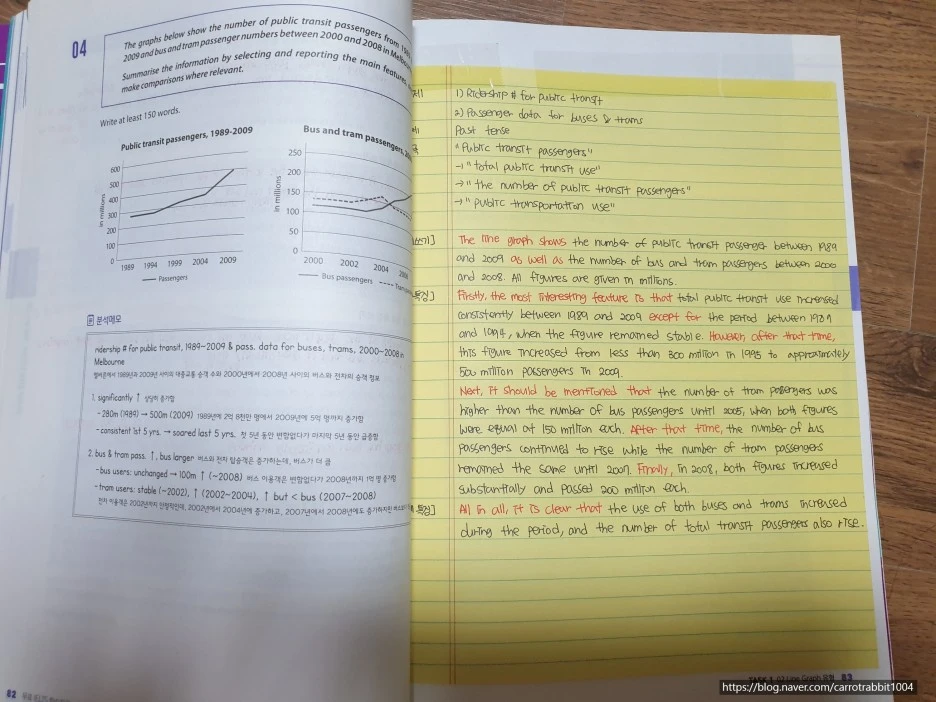 04
The graphs below show the number of public transit passengers from
2009 and bus and tram passenger numbers between 2000 and 2008 in
Summarise the information by selecting and reporting the main features,
make comparisons where relevant.
Write at least 150 words.
Public transit passengers, 1989-2009
in millions
600
500
400
300
200
100
0
1989 1994 1999 2004 2009
Passengers
Bus and tram passengers,
in millions
250
200
150
100
50
0
2000 2002 2004
Bus passengers
분석메모
ridership # for public transit, 1989~2009 & pass. data for buses, trams, 2000~2008 in
Melbourne
멜버른에서 1989년과 2009년 사이의 대중교통 승객 수와 2000년에서 2008년 사이의 버스와 전차의 승객 정보
1. significantly ↑ 상당히 증가함
- 280m (1989) → 500m (2009) 1989년에 2억 8천만 명에서 2009년에 5억 명까지 증가함
- consistent 1st 5 yrs. → soared last 5 yrs. 첫 5년 동안 변함없다가 마지막 5년 동안 급증함
2. bus & tram pass. ↑, bus larger 버스와 전차 탑승객은 증가하는데, 버스가 더 큼
- bus users: unchanged → 100m ↑ (~2008) 버스 이용객은 변함없다가 2008년까지 1억 명 증가함
- tram users: stable (~2002), ↑ (2002~2004), ↑ but < bus (2007~2008)
전차 이용객은 2002년까지 안정적인데, 2002년에서 2004년에 증가하고, 2007년에서 2008년에도 증가하지만
82
1) Ridership # for public transit
2) Passenger data for buses & trams
Past tense
"Public transit passengers"
→ "total public transit use"
→ "the number of public transit passengers"
→ "public transportation use"
The line graph shows the number of public transit passenger between 1989
and 2009 as well as the number of bus and tram passengers between 2000
and 2008. All figures are given in millions.
특징]
Firstly, the most interesting feature is that total public transit use increased
consistently between 1989 and 2009 except for the period between 1989
and 1994, when the figure remained stable. However after that time,
this figure increased from less than 300 million in 1995 to approximately
500 million passengers in 2009.
Next, it should be mentioned that the number of tram passengers was
higher than the number of bus passengers until 2005, when both figures
were equal at 150 million each. After that time, the number of bus
passengers continued to rise while the number of tram passengers
remained the same until 2007. Finally, in 2008, both figures increased
substantially and passed 200 million each.
특징]
All in all, it is clear that the use of both buses and trams increased
during the period, and the number of total transit passengers also rise.
83
https://blog.naver.com/carrotrabbit1004